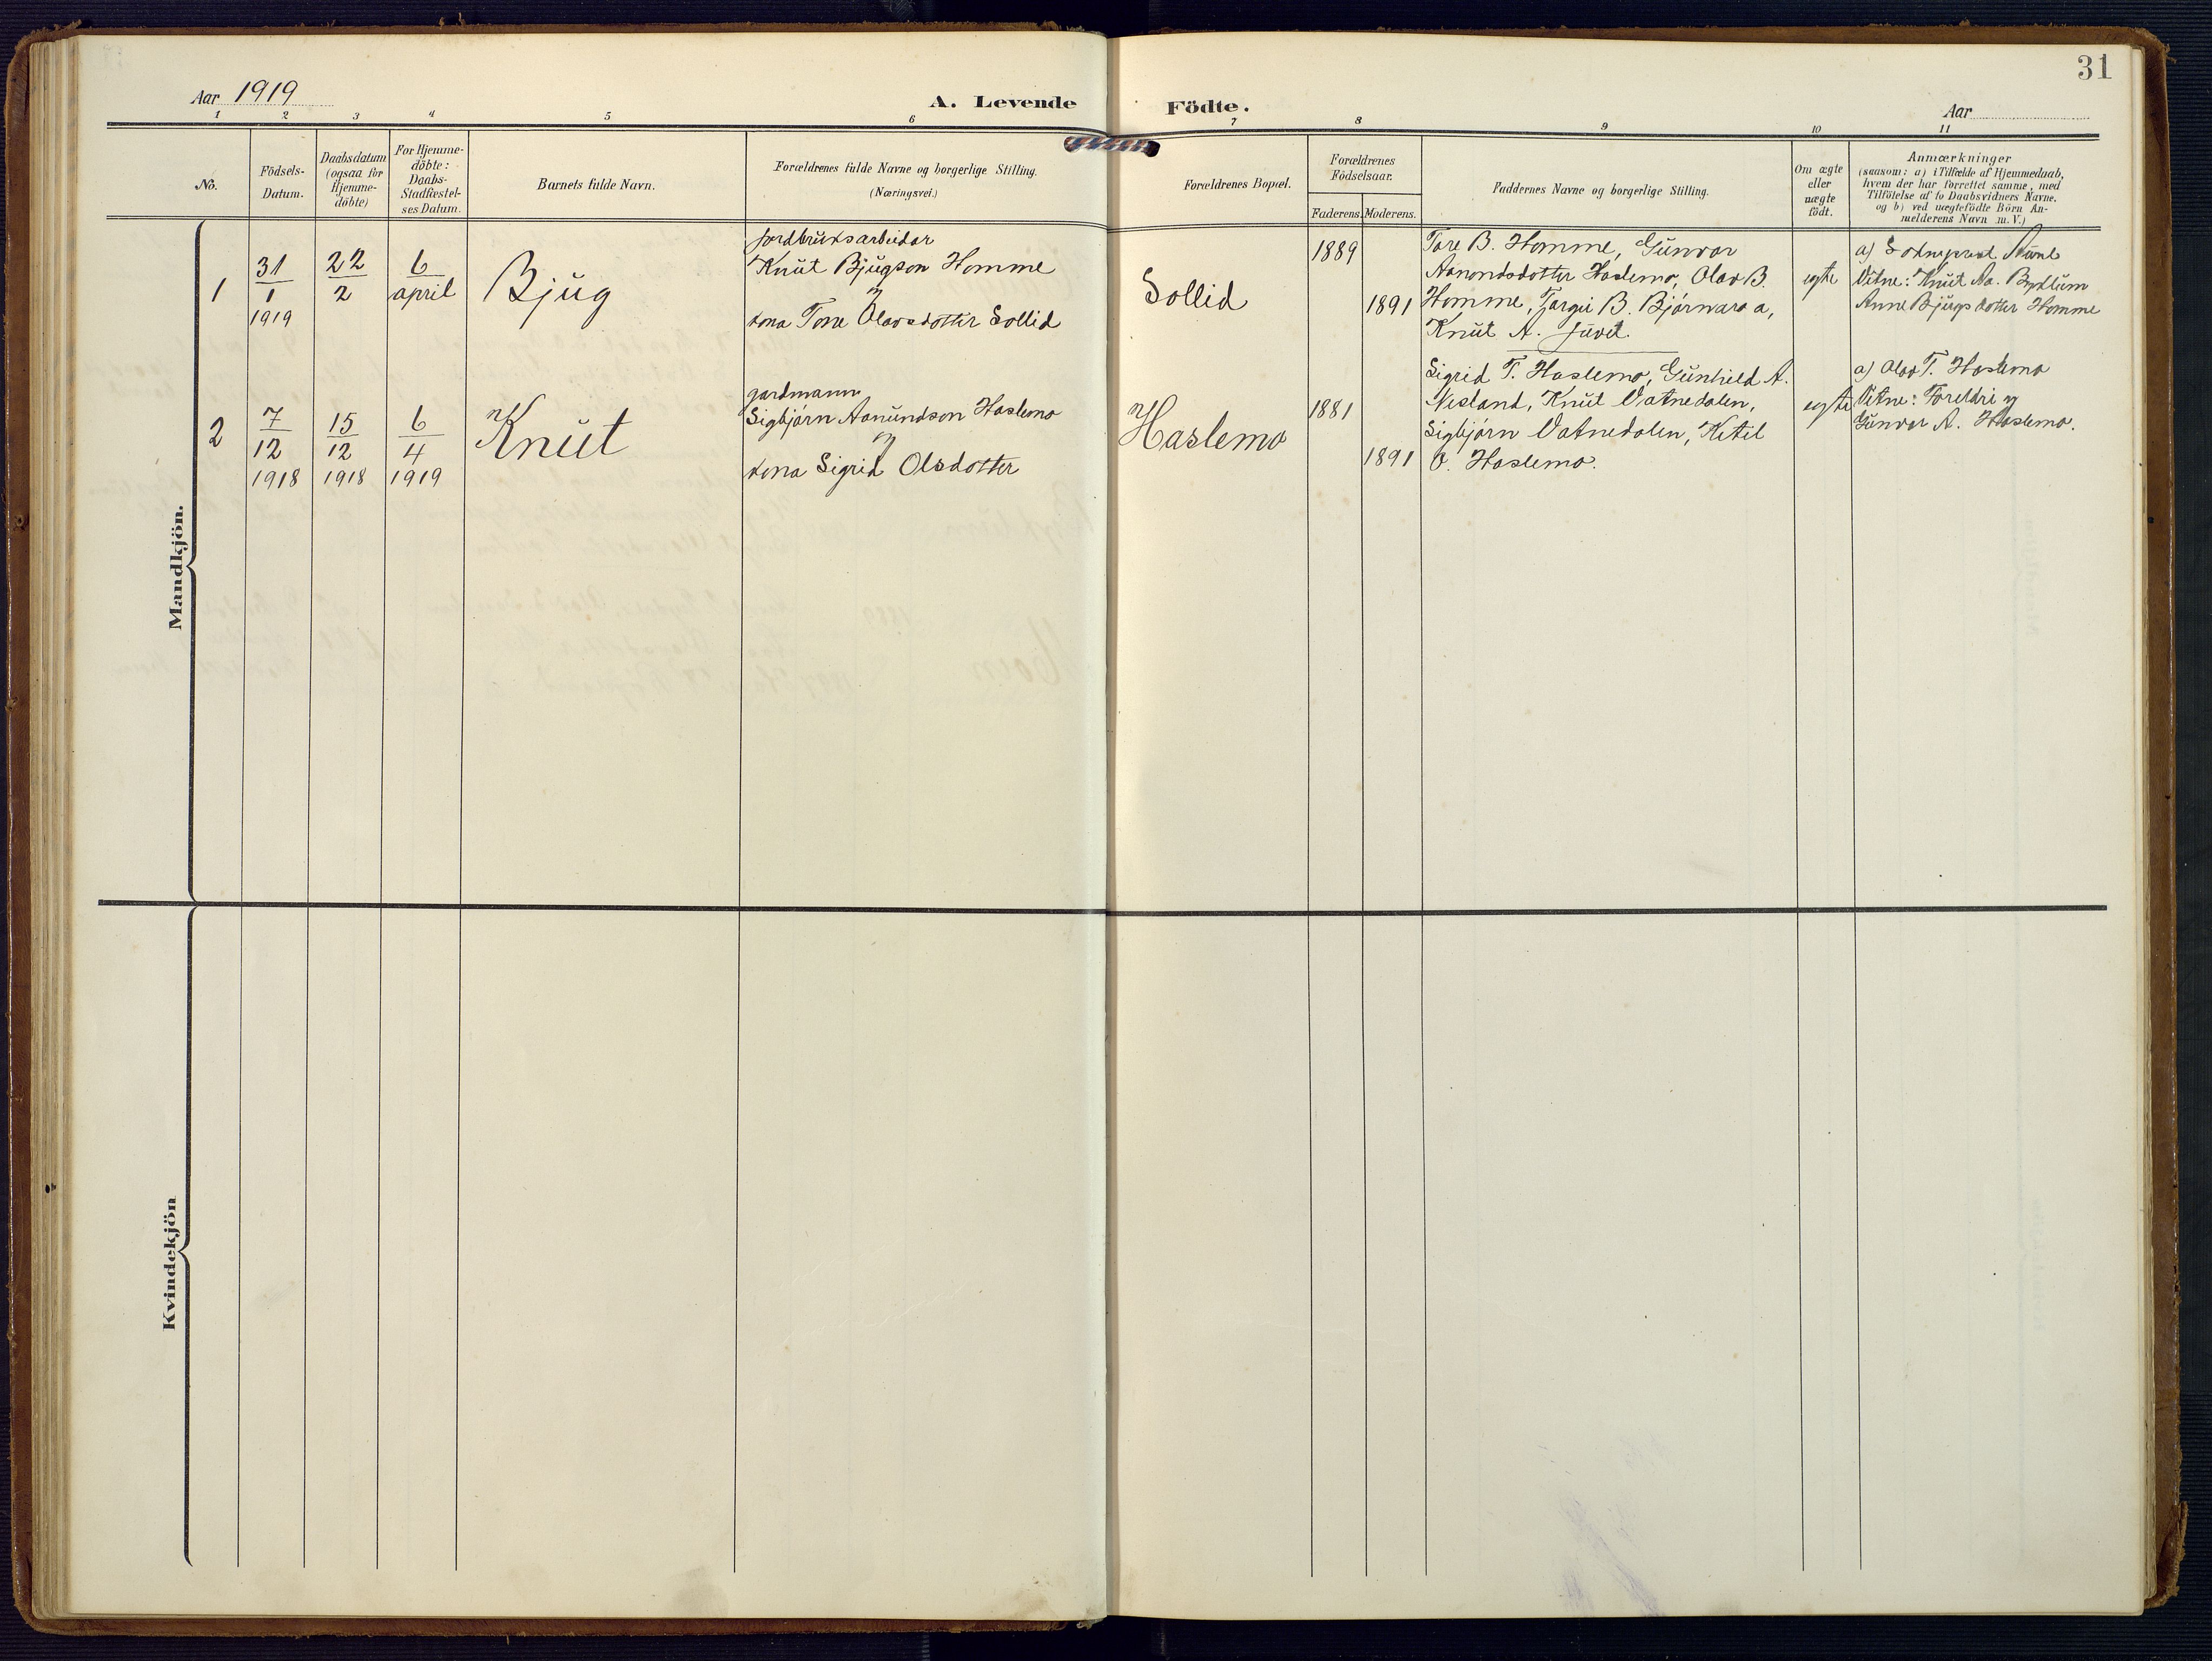 31
Aar 1919
A. Levende Födte.
Aar
1 2 3 4 5 6 7 8 9 10 11
No.
Födsels-
Datum.
Daabsdatum
(ogsaa for
Hjemme-
döbte)
For Hjemme-
döbte:
Daabs-
Stadfæstel-
ses Datum.
Barnets fulde Navn.
Forældrenes fulde Navne og borgerlige Stilling.
(Næringsvei.)
Forældrenes Bopæl.
Forældrenes
Födselsaar.
Faderens. Moderens.
Faddernes Navne og borgerlige Stilling.
Om ægte
eller
uægte
födt.
Anmærkninger
(saasom: a) i Tilfælde af Hjemmedaab,
hvem der har forrettet samme, med
Tilföielse af to Daabsvidners Navne,
og b) ved uægtefödte Börn An-
melderens Navn m. V.)
Mandkjön.
1
31
1
1919
22
2
6
april
Bjug
jordbruksarbeidar
Knut Bjugson Homme
og
kona Tone Olavsdotter Sollid
Sollid
1889
1891
Tore B. Homme, Gunvor
Aanondsdotter Haslemo, Olav B.
Homme, Targei B. Bjørnaraa,
Knut A. Juvet.
egte
a) Sokneprest
Vitne: Knut Aa. Bykkum
Anne Bjugsdotter Homme
2
7
12
1918
15
12
1918
6
4
1919
Knut
gardmann
Sigbjörn Aanundson Haslemo
og
kona Sigrid Olsdotter
Haslemo
1881
1891
Sigrid T. Haslemo, Gunhild A.
Nesland, Knut Vatnedalen,
Sigbjörn Vatnedalen, Ketil
O. Haslemo.
egte
a) Olav T. Haslemo
Vitne: Foreldri og
Gunvor A. Haslemo.
Kvindekjön